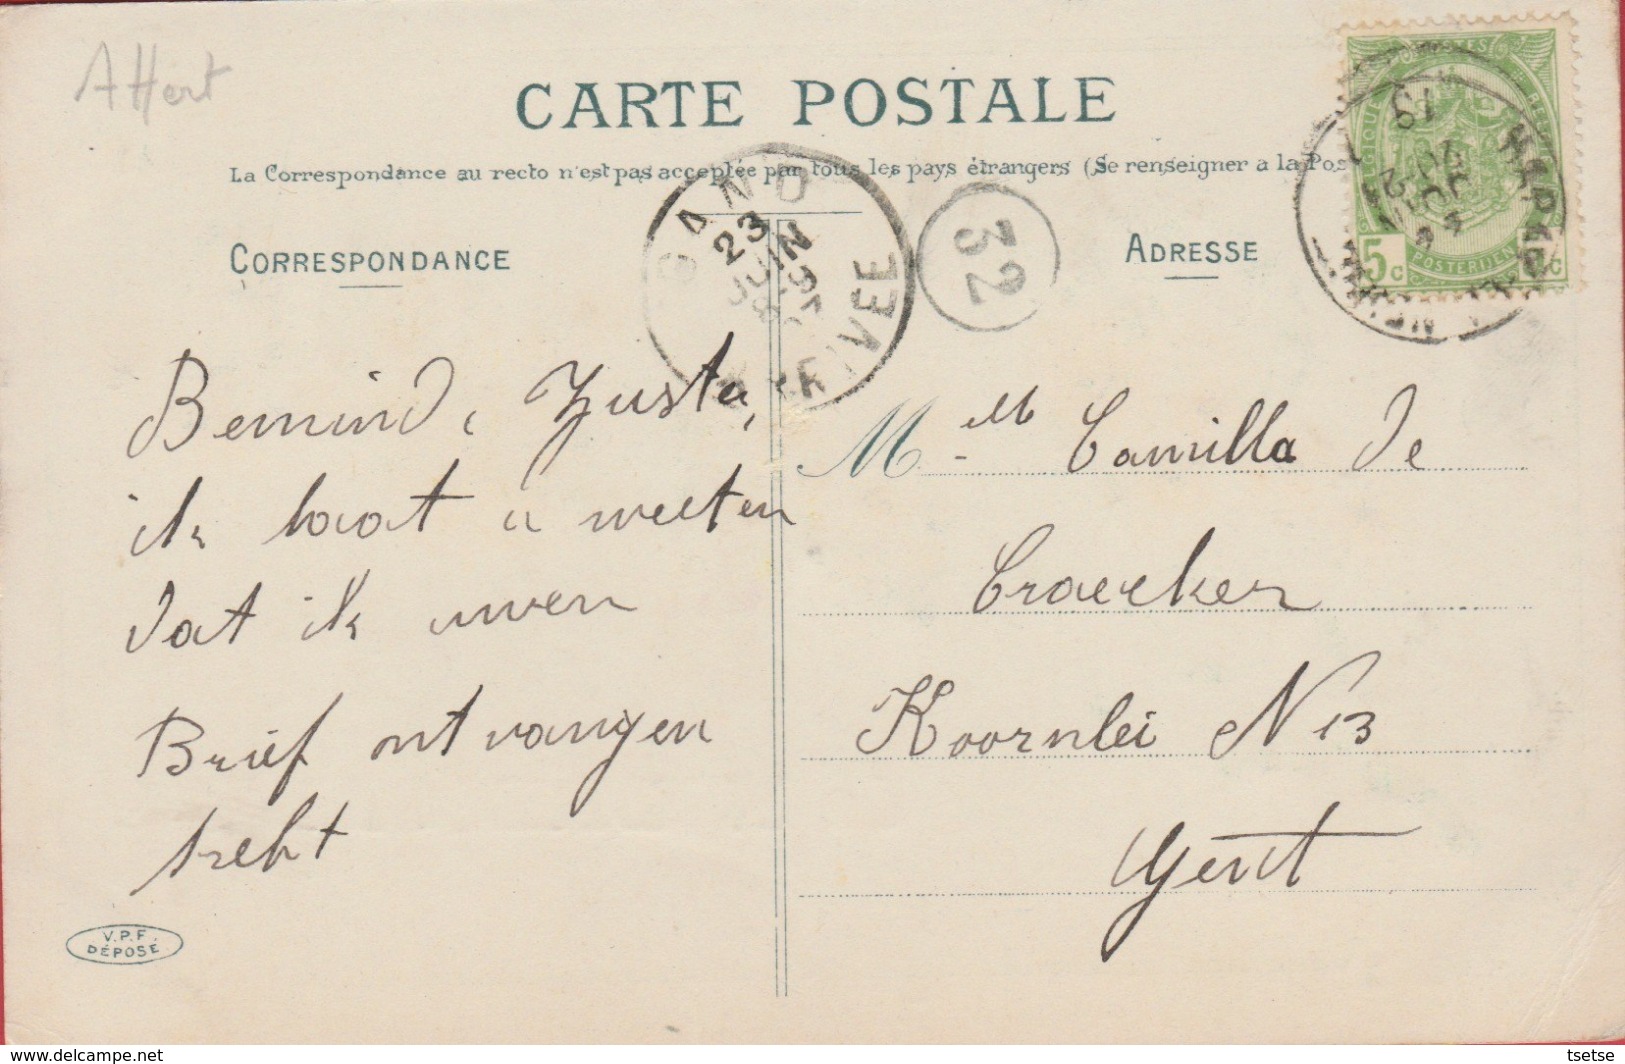 Attert
CARTE POSTALE
La Correspondance au recto n'est pas acceptée par tous les pays étrangers (Se renseigner a la Pos
GAND
23
JUIN
ARRIVEE
32
CORRESPONDANCE
ADRESSE
5c
POSTERIJEN
Bemind, Zuster,
ik laat u weeten
dat ik uwen
Brief ontvangen
hebt
Mell Camilla De
Craecker
Koornlei N 13
Gent
V.P.F.
DÉPOSÉ
www.delcampe.net
tsetse